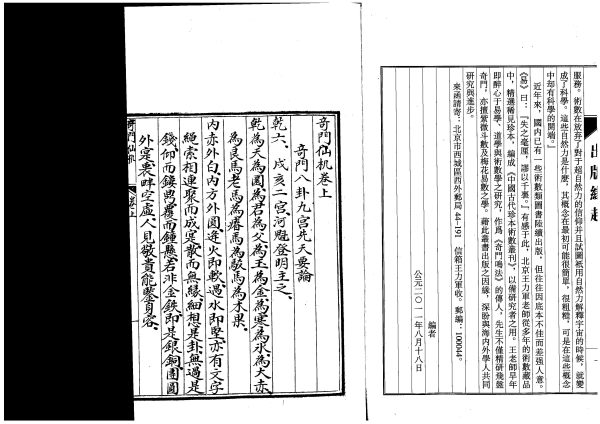 出版緣起
服務。術數在放弃了對于超自然力的信仰并且試圖衹用自然力解釋宇宙的時候，就變
成了科學。這些自然力是什麽，其概念在最初可能很簡單，很粗糙，可是在這些概念
中却有科學的開端。』
近年來，國内已有一些術數類圖書陸續出版，但往往因底本不佳而差强人意。
《易》曰：『失之毫厘，謬以千里。』有感于此，北京王力軍老師從多年的術數藏品
中，精選稀見珍本，編成《中國古代珍本術數叢刊》，以備研究者之用。王老師早年
即醉心于易學、道學與術數學之研究，作爲《奇門鳴法》的傳人，先生不僅精研幾盤
奇門，亦擅紫微斗數及梅花易數之學。藉此叢書出版之因緣，深盼與海内外學人共同
研究與進步。
來函請寄：北京市西城區西外郵局44-191　信箱王力軍收。郵編：100044。
編者
公元二〇一一年八月十八日
奇門仙机卷上
奇門八卦九宮先天要論
乾六、戌亥二宮河魁登明主之、
乾為天為圓為君為父為玉為金為寒為冰為大赤、
為良馬老馬為瘠馬為駁馬為木果、
内赤外白内方外圓逢火即軟遇水即堅亦有文字
繩索相連聚而成定散而無緣細想是卦無過是
錢仰而鍰胄覆而鐘懸若非金鉄即是銀銅團圓
外定裏畔空虚人見敬貴能鑒身容、
奇門仙机
卷上